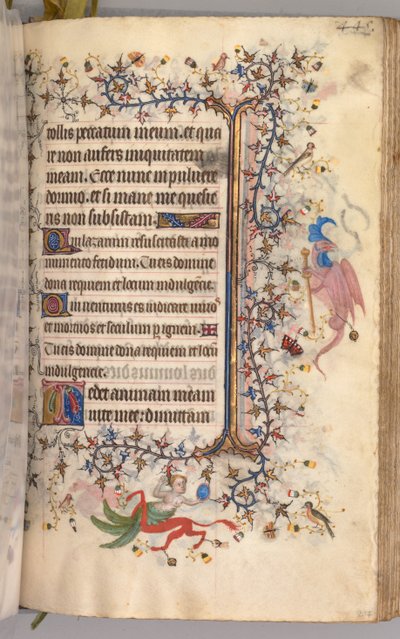 tollis peccatum meum. et qua
re non aufers iniquitatem
meam. Ecce nunc in pulvere
dormio. et si mane me quesie
ris non subsistam.
Qui lazarum resuscitasti a mo
numento fetidum. Tu eis domine
dona requiem et locum indulgencie.
Qui venturus es iudicare vivos
et mortuos et seculum p ignem.
Tu eis domine dona requiem et locū
indulgencie.
Tedet animam meam
vite mee. dimittam